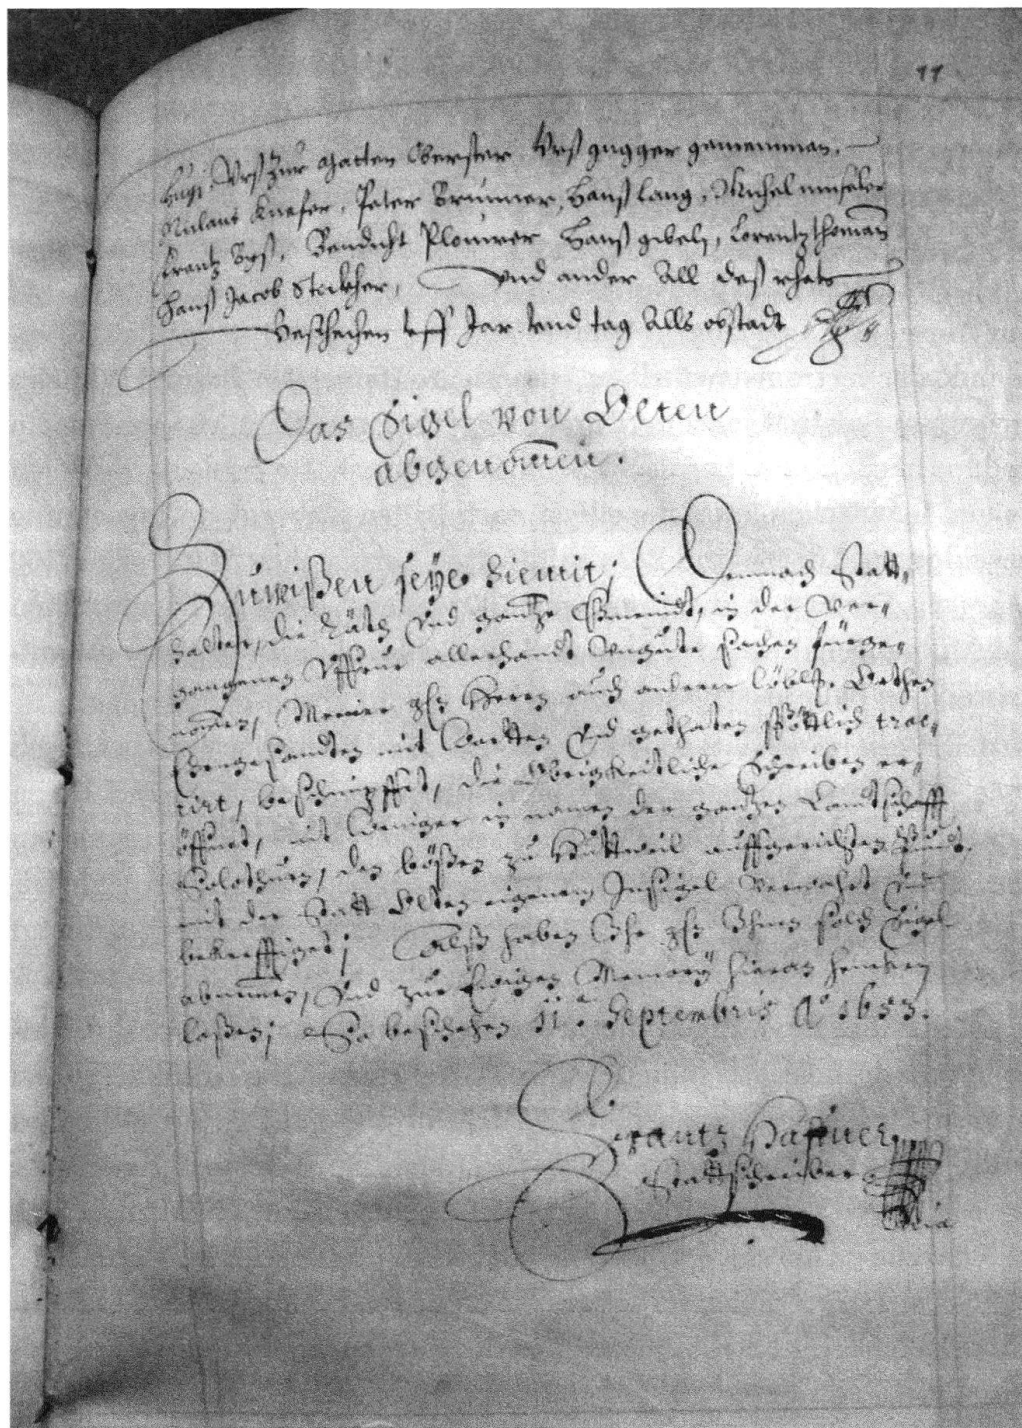 11
Hugi, Urß Zur Matten Oberster Urß gugger gemeinman,
Niclaus Knefer, Peter Brunner, Hanß lang, Michel
Frantz Byß, Bendicht Hanß gibely, Lorentz thoman
Hanß Jacob Stockher, und ander All deß rhats
Beschechen uff Jar und tag Alls obstadt
Das Sigel von Olten
abgenom̄en.
Zuwißen seye hiemit; Demnach Statt-
halter, die Räth Und gantze Gmeindt, in der Ver-
gangenen Uffruhr allerhandt Ungute sachen fürge-
nom̄en, Meiner gh Herren auch anderer löbl. Orthen
Ehrengesandten mit Wortten Und gethaten spöttlich trac-
tirt, beschimpfft, die Obrigkeitliche Schreiben er-
öffnet, nit weniger in namen der gantzen Landtschafft
Solothurn, den bößen zu Huttweil auffgerichten Pundt
mit der Statt Olten eigenem Insigel Verwahrt Und
bekrefftiget; Alß haben Ihr gh Ihnen solch Sigel
abnem̄en, Und zur Ewigen Memory hieran hencken
laßen; So beschehen 11. Septembris Ao 1653.
Frantz Haffner
Stattschreiber